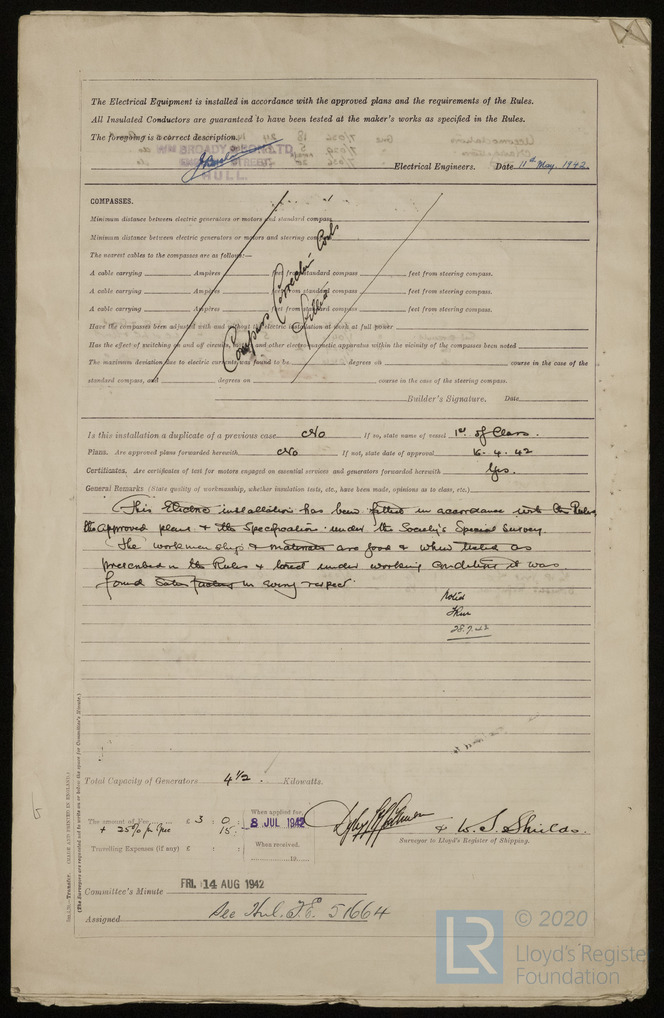 The Electrical Equipment is installed in accordance with the approved plans and the requirements of the Rules.
All Insulated Conductors are guaranteed to have been tested at the maker's works as specified in the Rules.
The foregoing is a correct description.
WM BROADY & SON LTD
HULL.
Electrical Engineers. Date 11th May. 1942.
COMPASSES.
Minimum distance between electric generators or motors and standard compass
Minimum distance between electric generators or motors and steering compass
The nearest cables to the compasses are as follows:—
A cable carrying Ampères feet from standard compass feet from steering compass.
A cable carrying Ampères feet from standard compass feet from steering compass.
A cable carrying Ampères feet from standard compass feet from steering compass.
Compass Correction Coils
Fitted
Have the compasses been adjusted with and without the electric installation at work at full power
Has the effect of switching on and off circuits, and other electro-magnetic apparatus within the vicinity of the compasses been noted
The maximum deviation due to electric currents was found to be degrees on course in the case of the
standard compass, and degrees on course in the case of the steering compass.
Builder's Signature. Date
Is this installation a duplicate of a previous case No If so, state name of vessel 1st of Class.
Plans. Are approved plans forwarded herewith No If not, state date of approval 16.4.42
Certificates. Are certificates of test for motors engaged on essential services and generators forwarded herewith Yes.
General Remarks (State quality of workmanship, whether insulation tests, etc., have been made, opinions as to class, etc.)
This Electric installation has been fitted in accordance with the Rules
the approved plans & the Specification under the Society's Special Survey
The workmanship & materials are good & when tested as
prescribed in the Rules & tested under working conditions it was
found satisfactory in every respect.
Noted
28.7.42
Total Capacity of Generators 4 1/2 Kilowatts.
The amount of Fee £ 3 : 0 :
+ 25% 15 :
When applied for,
8 JUL 1942
Travelling Expenses (if any) £ : :
When received,
19
& W. S. Shields.
Surveyor to Lloyd's Register of Shipping.
Committee's Minute FRI. 14 AUG 1942
Assigned See Hul. F.E. 51664
Transfer. (MADE AND PRINTED IN ENGLAND.)
(The Surveyors are requested not to write on or below the space for Committee's Minute.)
LR
© 2020
Lloyd's Register
Foundation